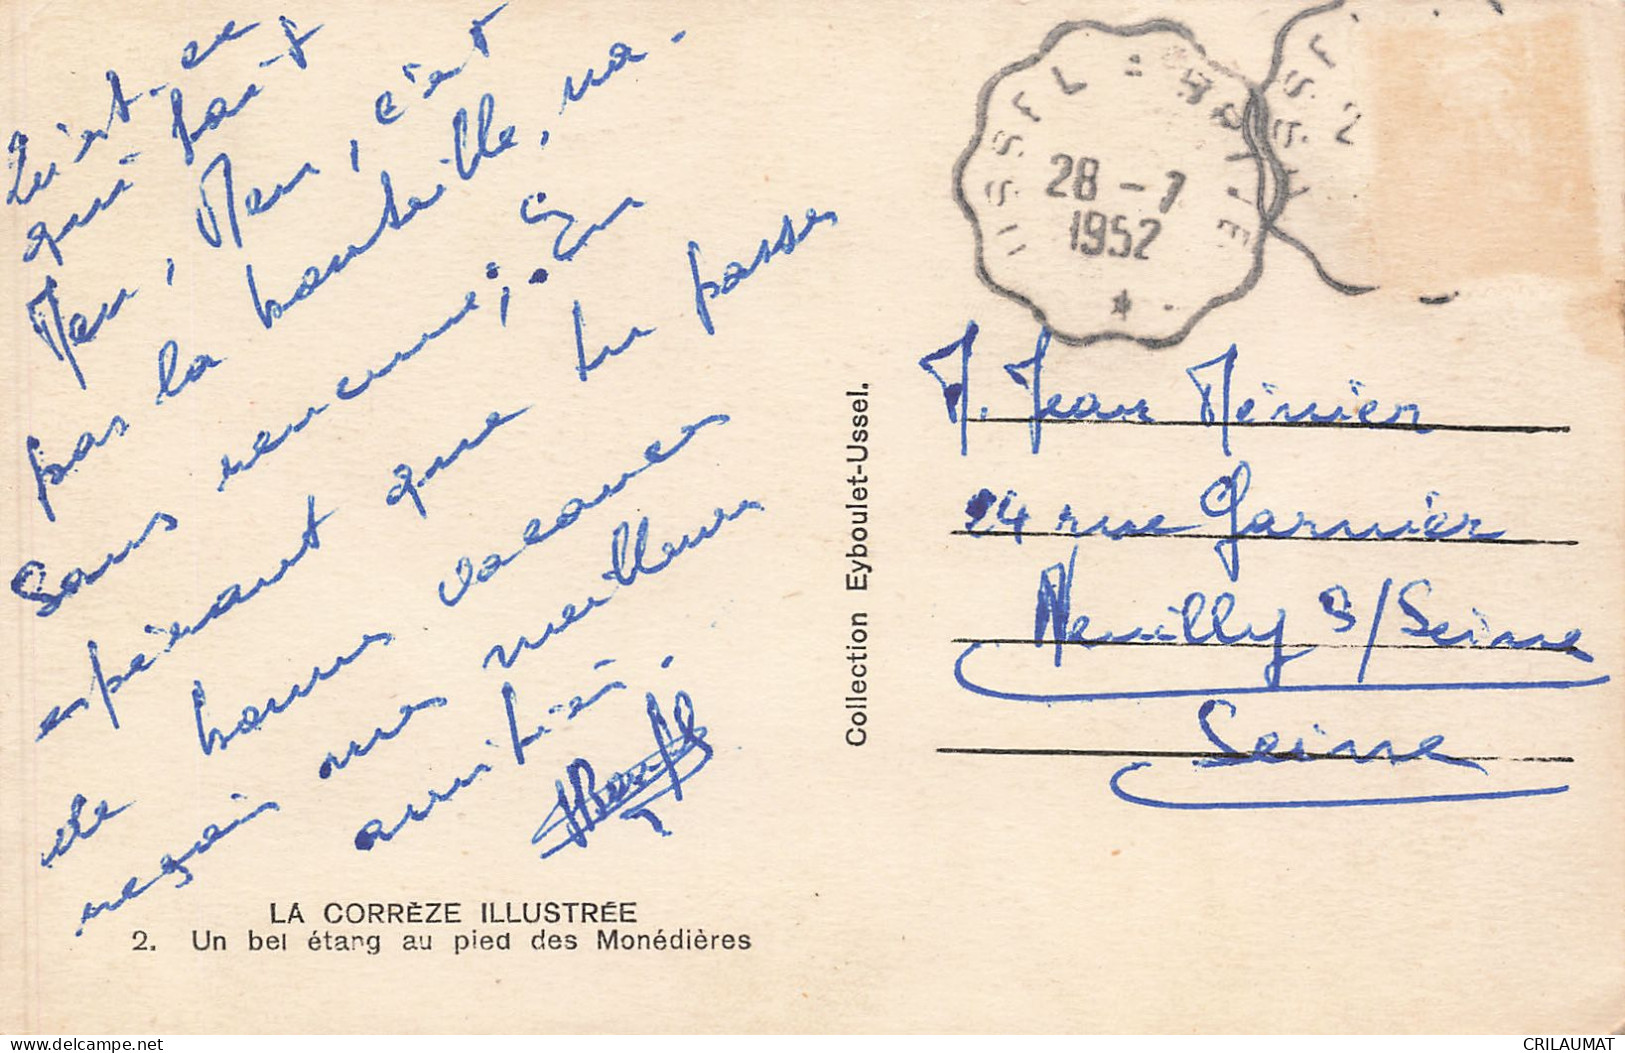 Qu'est-ce
qui fait
Meu, Meu, c'est
pas la bouteille, na.
Sans rancune; En
espérant que tu passes
de bonnes vacances
reçois mes meilleures
amitiés.
LA CORRÈZE ILLUSTRÉE
2. Un bel étang au pied des Monédières
Collection Eyboulet-Ussel.
USSEL
28 - 7
1952
M. Jean Ménier
24 rue Garnier
Neuilly s/Seine
Seine
CRILAUMAT